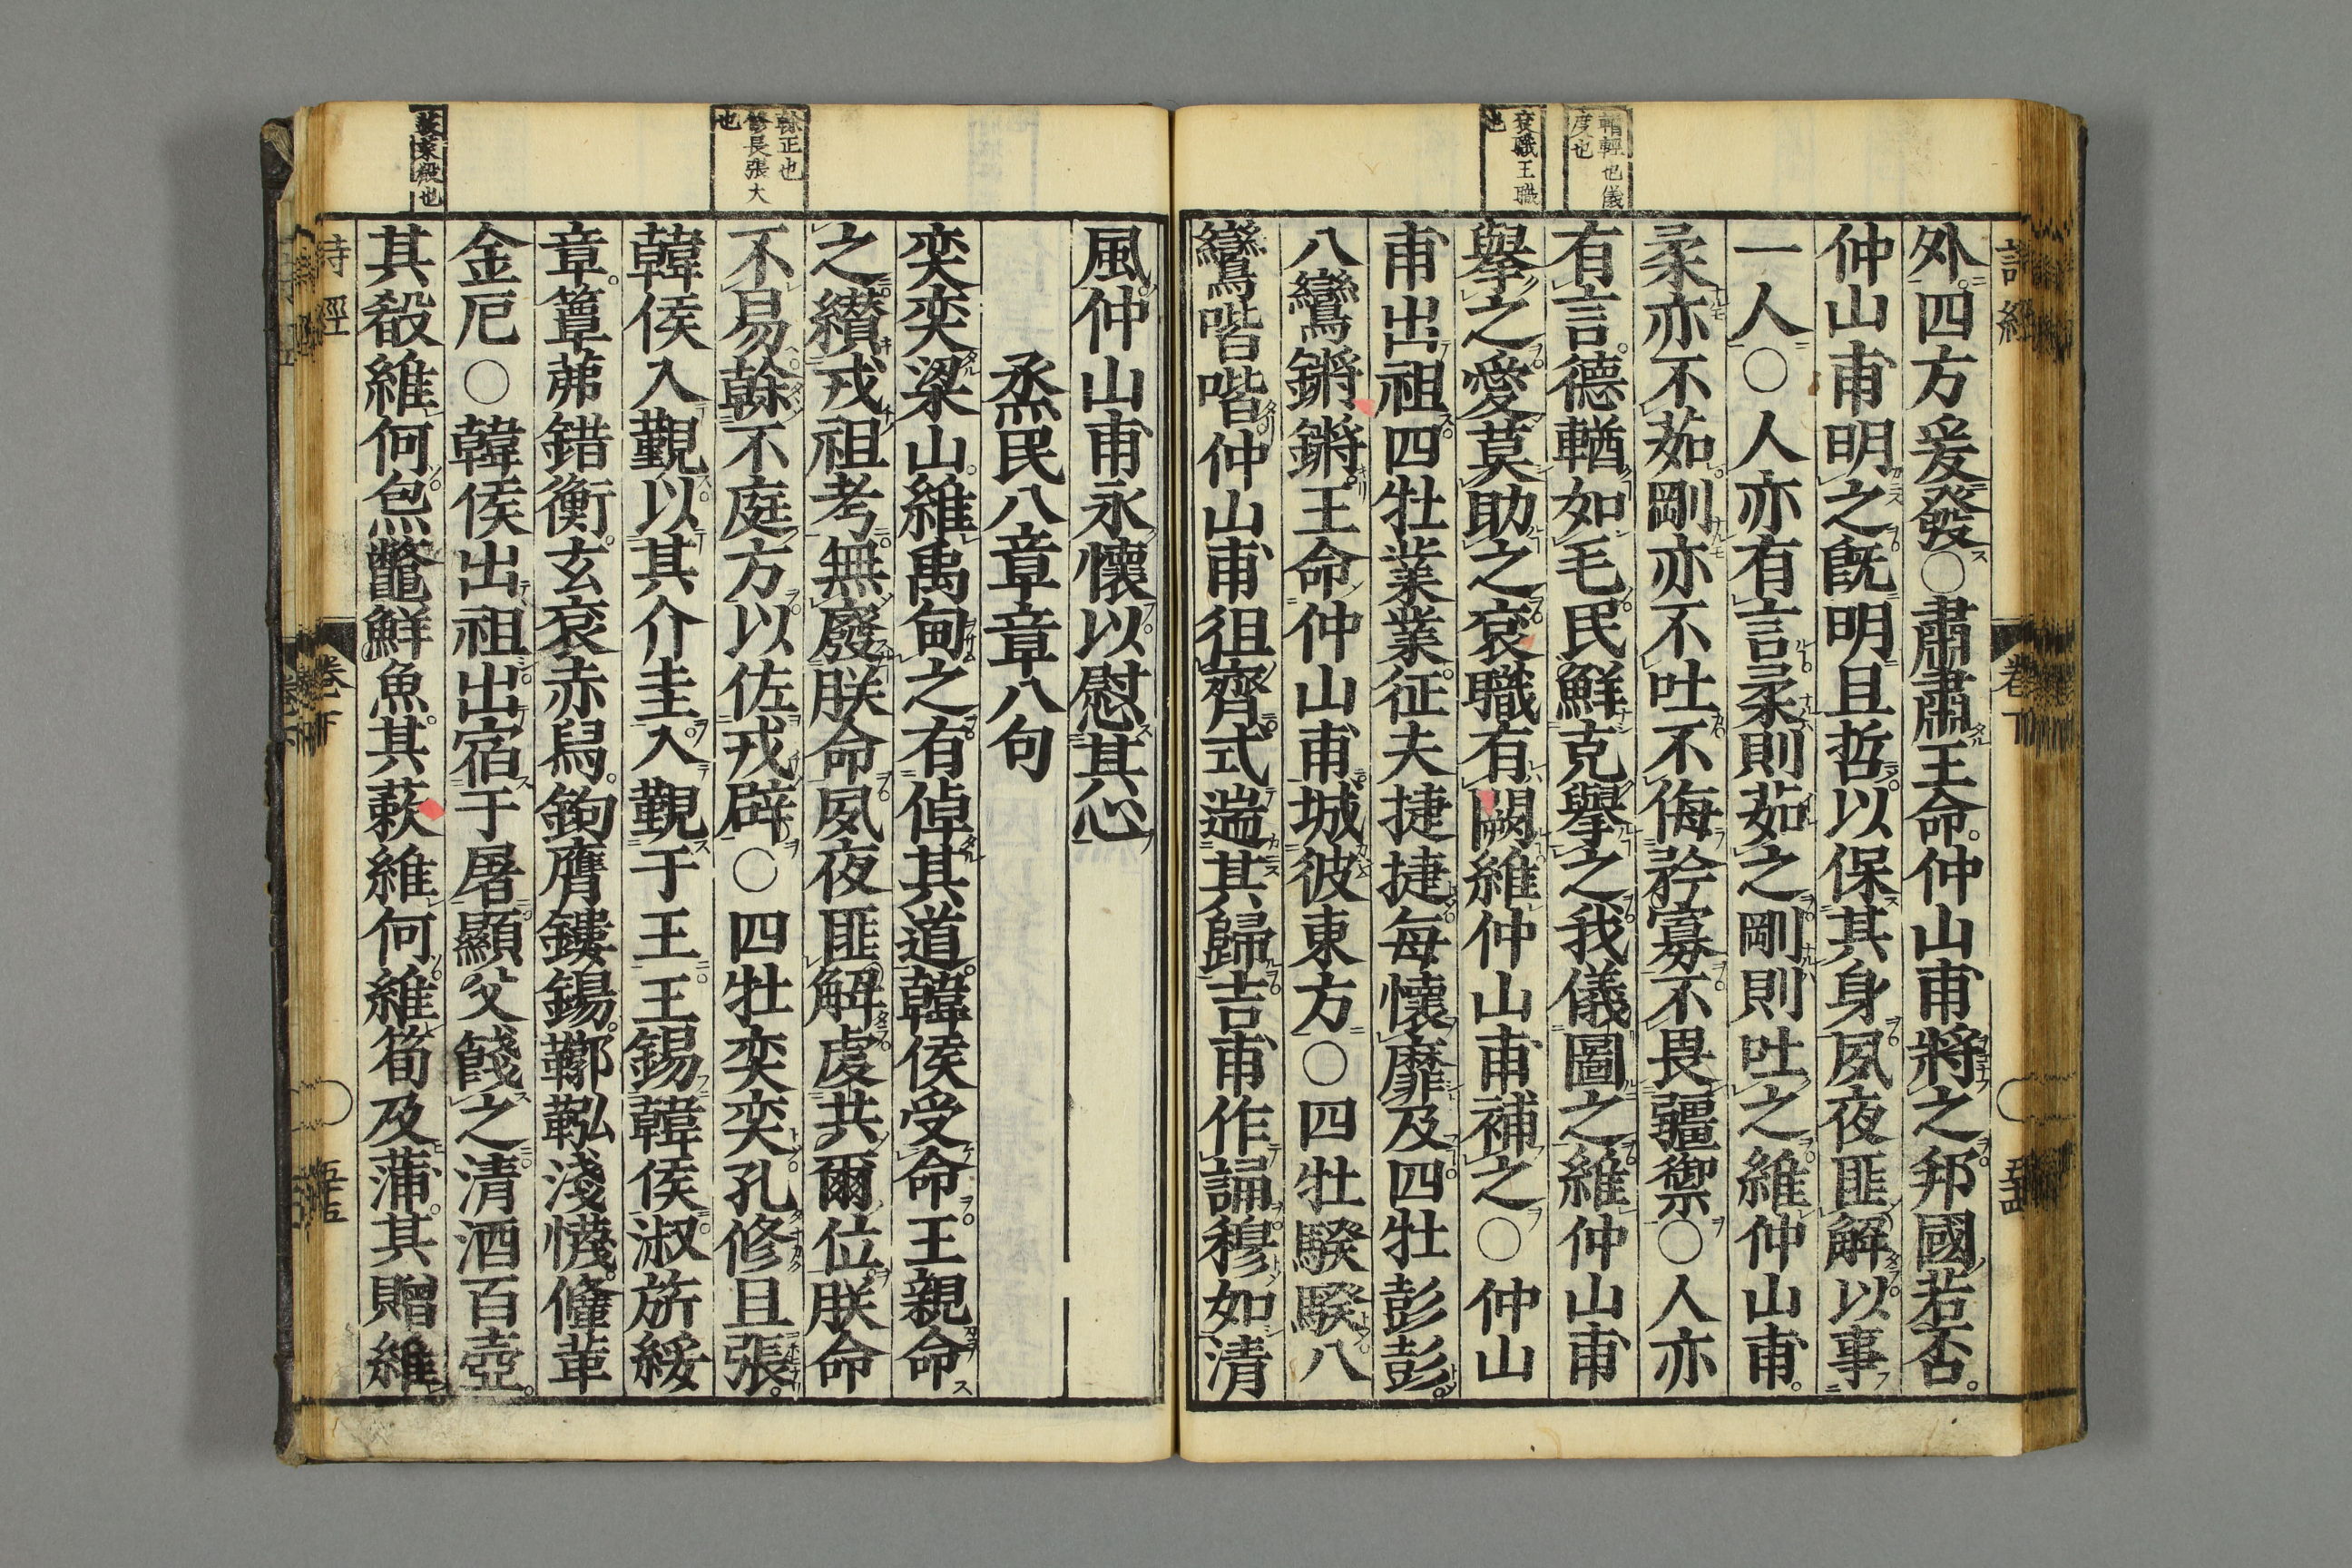 輶輕也儀
度也
袞職王職
也
外四方爰發○肅肅王命仲山甫將之邦國若否
仲山甫明之既明且哲以保其身夙夜匪解以事
一人○人亦有言柔則茹之剛則吐之維仲山甫
柔亦不茹剛亦不吐不侮矜寡不畏彊禦○人亦
有言德輶如毛民鮮克舉之我儀圖之維仲山甫
舉之愛莫助之袞職有闕維仲山甫補之○仲山
甫出祖四牡業業征夫捷捷每懷靡及四牡彭彭
八鸞鏘鏘王命仲山甫城彼東方○四牡騤騤八
鸞喈喈仲山甫徂齊式遄其歸吉甫作誦穆如清
榦正也
修長張大
也
蔌菜殽也
風仲山甫永懷以慰其心
烝民八章章八句
奕奕梁山維禹甸之有倬其道韓侯受命王親命
之纘戎祖考無廢朕命夙夜匪解虔共爾位朕命
不易榦不庭方以佐戎辟○四牡奕奕孔修且張
韓侯入覲以其介圭入覲于王王錫韓侯淑旂綏
章簟茀錯衡玄袞赤舄鉤膺鏤鍚鞹鞃淺幭鞗革
金厄○韓侯出祖出宿于屠顯父餞之清酒百壺
其殽維何炰鼈鮮魚其蔌維何維筍及蒲其贈維
詩經
卷下